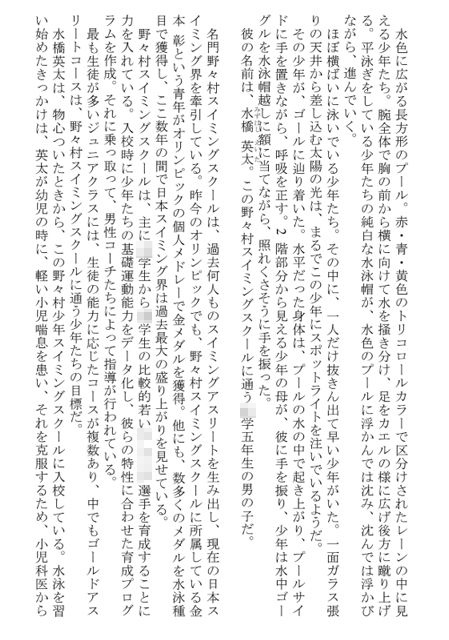 水色に広がる長方形のプール。赤・青・黄色のトリコロールカラーで区分けされたレーンの中に見
える少年たち。腕全体で胸の前から横に向けて水を掻き分け、足をカエルの様に広げ後方に蹴り上げ
る。平泳ぎをしている少年たちの純白な水泳帽が、水色のプールに浮かんでは沈み、沈んでは浮かび
ながら、進んでいく。
ほぼ横ばいに泳いでいる少年たち。その中に、一人だけ抜きん出て早い少年がいた。一面ガラス張
りの天井から差し込む太陽の光は、まるでこの少年にスポットライトを注いでいるようだ。
その少年が、ゴールに辿り着いた。水平だった身体は、プールの水の中で起き上がり、プールサイ
ドに手を置きながら、呼吸を正す。2階部分から見える少年の母が、彼に手を振り、少年は水中ゴー
グルを水泳帽越しに額に当てながら、照れくさそうに手を振った。
彼の名前は、水橋 英太。この野々村スイミングスクールに通う学五年生の男の子だ。
名門野々村スイミングスクールは、過去何人ものスイミングアスリートを生み出し、現在の日本ス
イミング界を牽引している。昨今のオリンピックでも、野々村スイミングスクールに所属している金
本 彰という青年がオリンピックの個人メドレーで金メダルを獲得。他にも、数多くのメダルを水泳種
目で獲得し、ここ数年の間で日本スイミング界は過去最大の盛り上がりを見せている。
野々村スイミングスクールは、主に学生から学生の比較的若い選手を育成することに
力を入れている。入校時に少年たちの基礎運動能力をデータ化し、彼らの特性に合わせた育成プログ
ラムを作成。それに乗っ取って、男性コーチたちによって指導が行われている。
最も生徒が多いジュニアクラスには、生徒の能力に応じたコースが複数あり、中でもゴールドアス
リートコースは、野々村スイミングスクールに通う少年たちの目標だ。
水橋英太は、物心ついたときから、この野々村少年スイミングスクールに入校している。水泳を習
い始めたきっかけは、英太が幼児の時に、軽い小児喘息を患い、それを克服するため、小児科医から